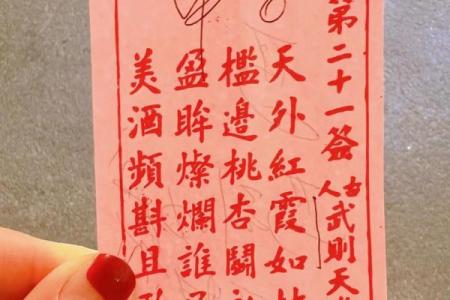 第二十一签 古人武則天
天外紅霞如
檻邊桃杏鬪
盈眸燦爛誰
美酒頻斟且